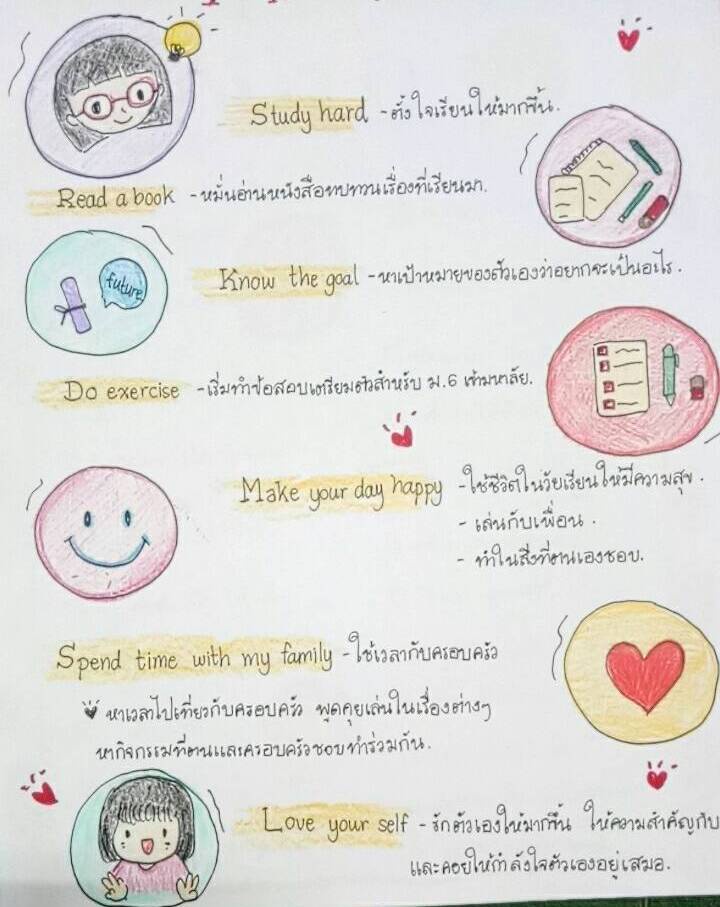 Study hard - ตั้งใจเรียนให้มากขึ้น.
Read a book - หมั่นอ่านหนังสือทบทวนเรื่องที่เรียนมา.
future
Know the goal - หาเป้าหมายของตัวเองว่าอยากจะเป็นอะไร.
Do exercise - เริ่มทำข้อสอบเตรียมตัวสำหรับ ม.6 เข้ามหาลัย.
Make your day happy - ใช้ชีวิตในวัยเรียนให้มีความสุข.
- เล่นกับเพื่อน.
- ทำในสิ่งที่ตนเองชอบ.
Spend time with my family - ใช้เวลากับครอบครัว
หาเวลาไปเที่ยวกับครอบครัว พูดคุยเล่นในเรื่องต่างๆ
หากิจกรรมที่ตนและครอบครัวชอบทำร่วมกัน.
Love your self - รักตัวเองให้มากขึ้น ให้ความสำคัญกับ
และคอยให้กำลังใจตัวเองอยู่เสมอ.